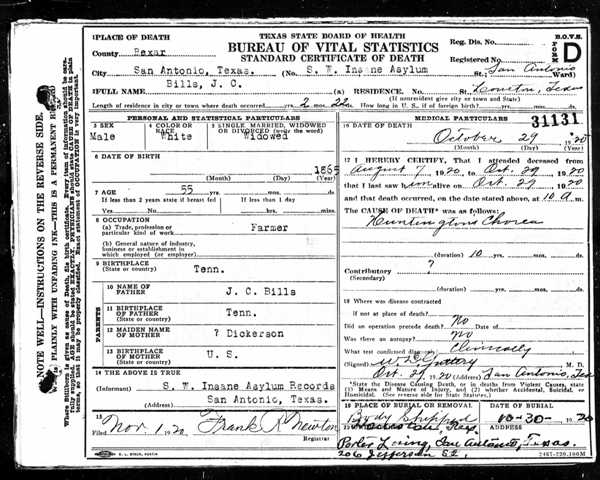 PLACE OF DEATH
TEXAS STATE BOARD OF HEALTH
BUREAU OF VITAL STATISTICS
STANDARD CERTIFICATE OF DEATH
B.O.V.S.
FORM D
Reg. Dis. No.
Registered No.
County Bexar
City San Antonio, Texas. (No. S. W. Insane Asylum St.; San Antonio Ward)
FULL NAME Bills, J. C. (a) RESIDENCE. No. St.
(If nonresident give city or town and State)
Length of residence in city or town where death occurred yrs. 2 mos. 22 ds. How long in U. S., if of foreign birth? yrs. mos. ds.
PERSONAL AND STATISTICAL PARTICULARS
3 SEX
Male
4 COLOR OR RACE
White
5 SINGLE, MARRIED, WIDOWED OR DIVORCED (write the word)
Widowed
6 DATE OF BIRTH
1865
(Month) (Day) (Year)
7 AGE 55 yrs. mos. ds.
If less than 2 years state if breast fed
If less than 1 day
Yes No hrs. min.
8 OCCUPATION
(a) Trade, profession or particular kind of work
Farmer
(b) General nature of industry, business or establishment in which employed (or employer)
9 BIRTHPLACE
(State or country)
Tenn.
PARENTS
10 NAME OF FATHER
J. C. Bills
11 BIRTHPLACE OF FATHER
(State or country)
Tenn.
12 MAIDEN NAME OF MOTHER
? Dickerson
13 BIRTHPLACE OF MOTHER
(State or country)
U. S.
14 THE ABOVE IS TRUE
(Informant) S. W. Insane Asylum Records
(Address) San Antonio, Texas.
15
Filed Nov. 1, 1920 Frank R Newton
Registrar
MEDICAL PARTICULARS
31131
16 DATE OF DEATH
October 29 1920
(Month) (Day) (Year)
17 I HEREBY CERTIFY, That I attended deceased
from August 7 1920 to Oct. 29 1920
that I last saw him alive on Oct. 29 1920
and that death occurred, on the date stated above, at 10 a m.
The CAUSE OF DEATH* was as follows:
Huntingtons Chorea
(duration) 10 yrs. mos. ds.
Contributory ?
(Secondary)
(duration) yrs. mos. ds.
18 Where was disease contracted
if not at place of death?
Did an operation precede death? No Date of
Was there an autopsy? No
What test confirmed diagnosis? Clinically
(Signed) M. D.
Oct. 29 1920 (Address) San Antonio, Tex
*State the Disease Causing Death, or in deaths from Violent Causes, state (1) Means and Nature of Injury, and (2) whether Accidental, Suicidal, or Homicidal. (See reverse side for statement.)
19 PLACE OF BURIAL OR REMOVAL
Body Shipped
DATE OF BURIAL
10-30- 1920
ADDRESS
Porter Loring, San Antonio, Texas.
206 Jefferson St.
2467-220-100M
E. L. STECK, AUSTIN
NOTE WELL—INSTRUCTIONS ON THE REVERSE SIDE.
PLAINLY WITH UNFADING INK—THIS IS A PERMANENT